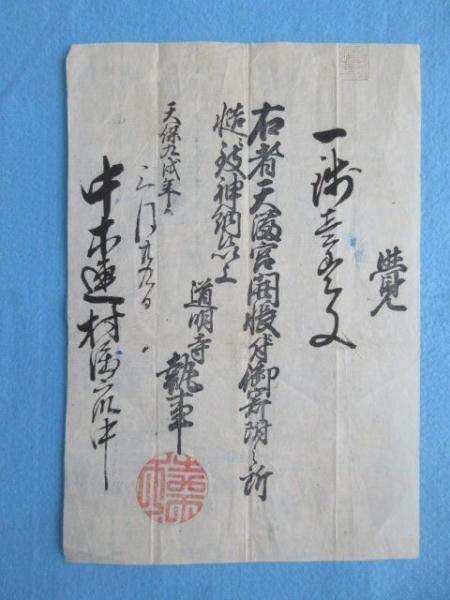 覺
一 銭壱貫文
右者天満宮開帳ニ付御寄附之所
慥ニ致神納候以上
道明寺
執事
天保九戌年
三月廿九日
中木連村
中